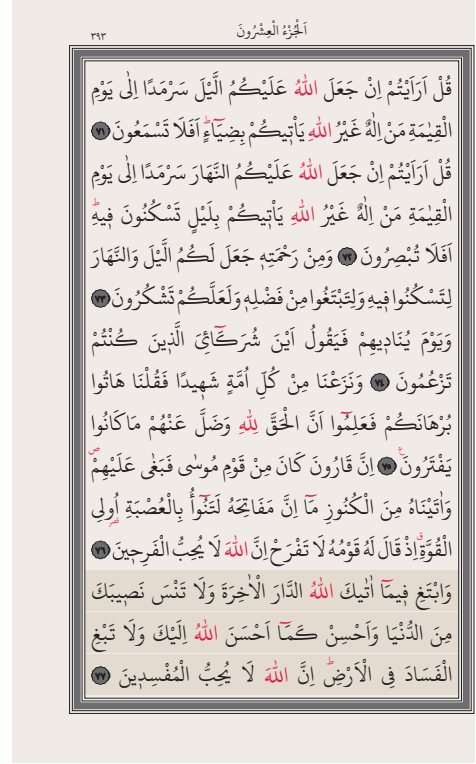 اَلْجُزْءُ الْعِشْرُونَ
٣٩٣
قُلْ اَرَاَيْتُمْ اِنْ جَعَلَ اللّٰهُ عَلَيْكُمُ الَّيْلَ سَرْمَدًا اِلٰى يَوْمِ
الْقِيٰمَةِ مَنْ اِلٰهٌ غَيْرُ اللّٰهِ يَأْتٖيكُمْ بِضِيَٓاءٍۜ اَفَلَا تَسْمَعُونَ ﴿٧١﴾
قُلْ اَرَاَيْتُمْ اِنْ جَعَلَ اللّٰهُ عَلَيْكُمُ النَّهَارَ سَرْمَدًا اِلٰى يَوْمِ
الْقِيٰمَةِ مَنْ اِلٰهٌ غَيْرُ اللّٰهِ يَأْتٖيكُمْ بِلَيْلٍ تَسْكُنُونَ فٖيهِۜ
اَفَلَا تُبْصِرُونَ ﴿٧٢﴾ وَمِنْ رَحْمَتِهٖ جَعَلَ لَكُمُ الَّيْلَ وَالنَّهَارَ
لِتَسْكُنُوا فٖيهِ وَلِتَبْتَغُوا مِنْ فَضْلِهٖ وَلَعَلَّكُمْ تَشْكُرُونَ ﴿٧٣﴾
وَيَوْمَ يُنَادٖيهِمْ فَيَقُولُ اَيْنَ شُرَكَٓائِيَ الَّذٖينَ كُنْتُمْ
تَزْعُمُونَ ﴿٧٤﴾ وَنَزَعْنَا مِنْ كُلِّ اُمَّةٍ شَهٖيدًا فَقُلْنَا هَاتُوا
بُرْهَانَكُمْ فَعَلِمُٓوا اَنَّ الْحَقَّ لِلّٰهِ وَضَلَّ عَنْهُمْ مَا كَانُوا
يَفْتَرُونَ۟ ﴿٧٥﴾ اِنَّ قَارُونَ كَانَ مِنْ قَوْمِ مُوسٰى فَبَغٰى عَلَيْهِمْۖ
وَاٰتَيْنَاهُ مِنَ الْكُنُوزِ مَٓا اِنَّ مَفَاتِحَهُ لَتَنُٓواُ بِالْعُصْبَةِ اُولِي
الْقُوَّةِۗ اِذْ قَالَ لَهُ قَوْمُهُ لَا تَفْرَحْ اِنَّ اللّٰهَ لَا يُحِبُّ الْفَرِحٖينَ ﴿٧٦﴾
وَابْتَغِ فٖيمَٓا اٰتٰيكَ اللّٰهُ الدَّارَ الْاٰخِرَةَ وَلَا تَنْسَ نَصٖيبَكَ
مِنَ الدُّنْيَا وَاَحْسِنْ كَمَٓا اَحْسَنَ اللّٰهُ اِلَيْكَ وَلَا تَبْغِ
الْفَسَادَ فِي الْاَرْضِۜ اِنَّ اللّٰهَ لَا يُحِبُّ الْمُفْسِدٖينَ ﴿٧٧﴾